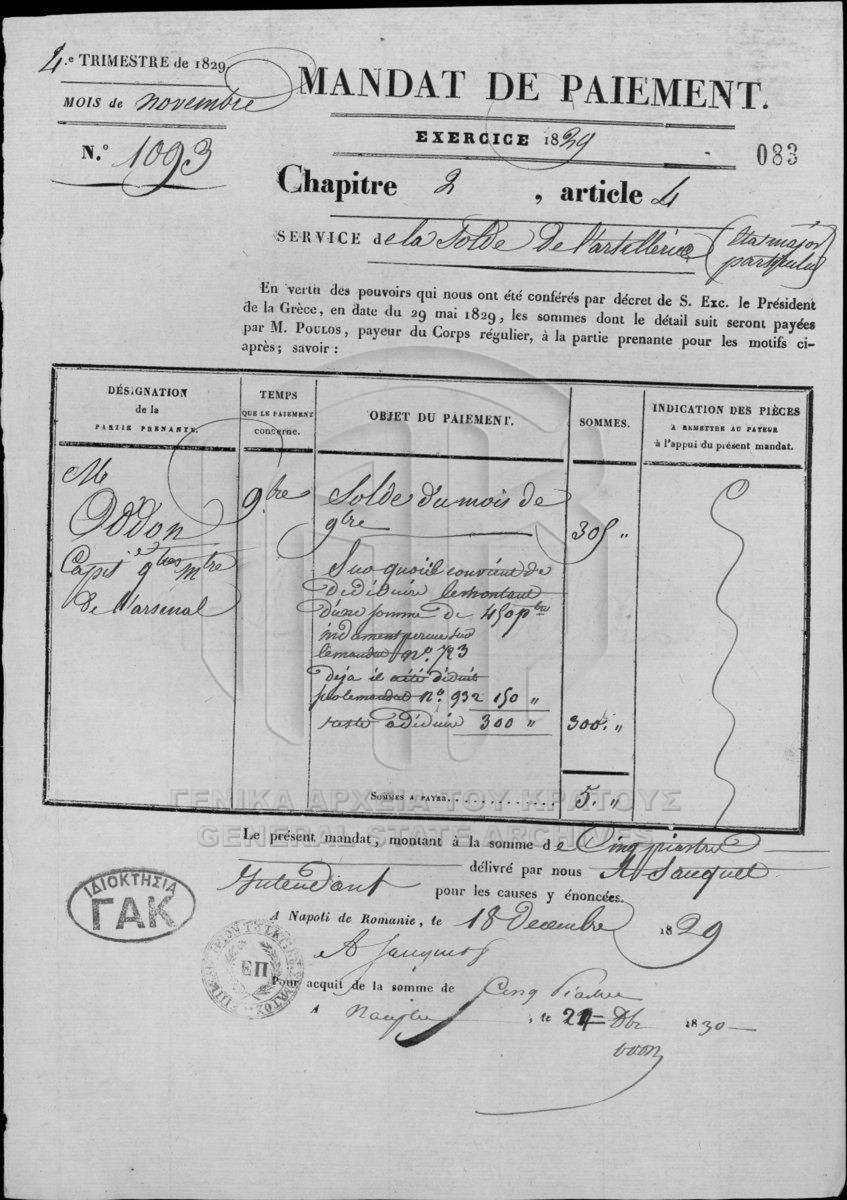 4.e TRIMESTRE de 1829.
MOIS de novembre
N.o 1093
MANDAT DE PAIEMENT.
EXERCICE 1829
083
Chapitre 2, article 4
SERVICE de la Solde De l'artillerie (Etat major
particulier)
En vertu des pouvoirs qui nous ont été conférés par décret de S. Exc. le Président
de la Grèce, en date du 29 mai 1829, les sommes dont le détail suit seront payées
par M. POULOS, payeur du Corps régulier, à la partie prenante pour les motifs ci-
après; savoir :
DÉSIGNATION
de la
PARTIE PRENANTE.
TEMPS
QUE LE PAIEMENT
concerne.
OBJET DU PAIEMENT.
SOMMES.
INDICATION DES PIÈCES
A REMETTRE AU PAYEUR
à l'appui du présent mandat.
M
Oddon
Capit
de l'arsenal
9bre
Solde du mois de
9bre
305 "
Sur quoi il convient de
déduire le montant
d'une somme de 450 p
indument perçue sur
le mandat no. 723
deja il a été déduit
par le mandat no. 932 150 "
reste à déduire 300 "
300 "
SOMMES A PAYER
5 "
ΓΕΝΙΚΑ ΑΡΧΕΙΑ ΤΟΥ ΚΡΑΤΟΥΣ
GENERAL STATE ARCHIVES
Le présent mandat, montant à la somme de Cinq piastres
délivré par nous
Intendant pour les causes y énoncées.
A Napoli de Romanie, le 18 Decembre 1829
ΙΔΙΟΚΤΗΣΙΑ
ΓΑΚ
ΕΠ
Pour acquit de la somme de Cinq Piastres
A Nauplie, le 21 Dbr 1830